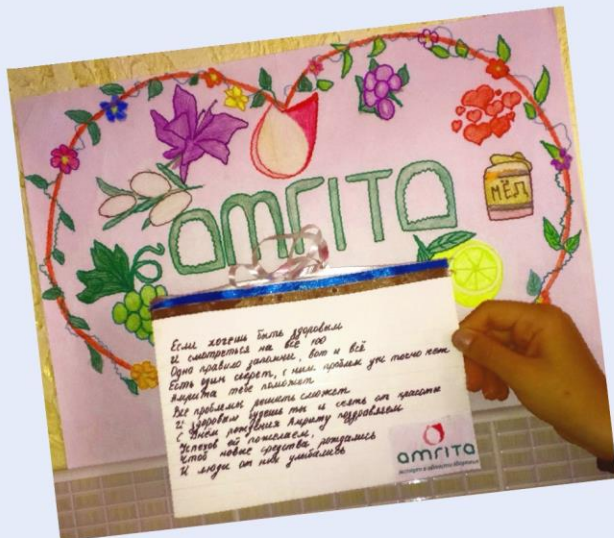 амгіта
МЁД
Если хочешь быть здоровым
И смотреться на всё 100
Одно правило запомни, вот и всё
Есть один секрет, с ним проблем уж точно нет
Амрита тебе поможет
Все проблемы решить сможет
И здоровым будешь ты и сиять от красоты
С Днём рождения Амриту поздравляем
Успехов ей пожелаем,
Чтоб новые средства рождались
И люди от них улыбались
амгіта
эксперт в области здоровья